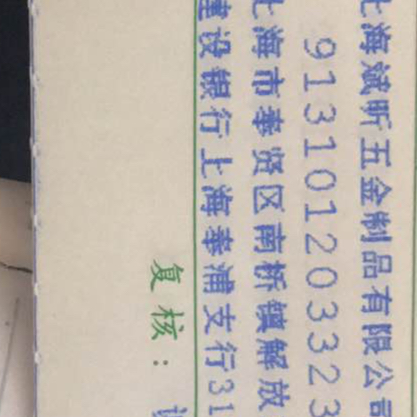 上海斌昕五金制品有限公司
913101203323
上海市奉贤区南桥镇解放
建设银行上海奉浦支行31
复核：